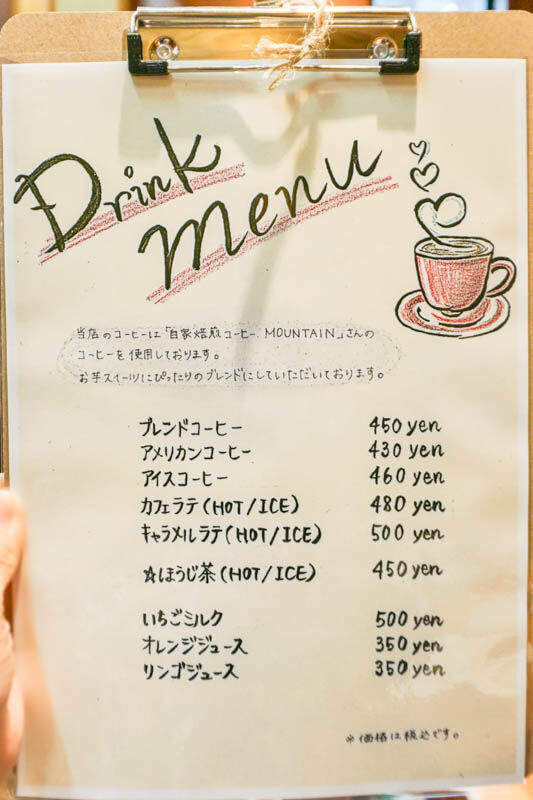 Drink
menu
当店のコーヒーは「自家焙煎コーヒー MOUNTAIN」さんの
コーヒーを使用しております。
お芋スイーツにぴったりのブレンドにしていただいております。
ブレンドコーヒー 450 yen
アメリカンコーヒー 430 yen
アイスコーヒー 460 yen
カフェラテ(HOT/ICE) 480 yen
キャラメルラテ(HOT/ICE) 500 yen
☆ほうじ茶(HOT/ICE) 450 yen
いちごミルク 500 yen
オレンジジュース 350 yen
リンゴジュース 350 yen
※価格は税込です。